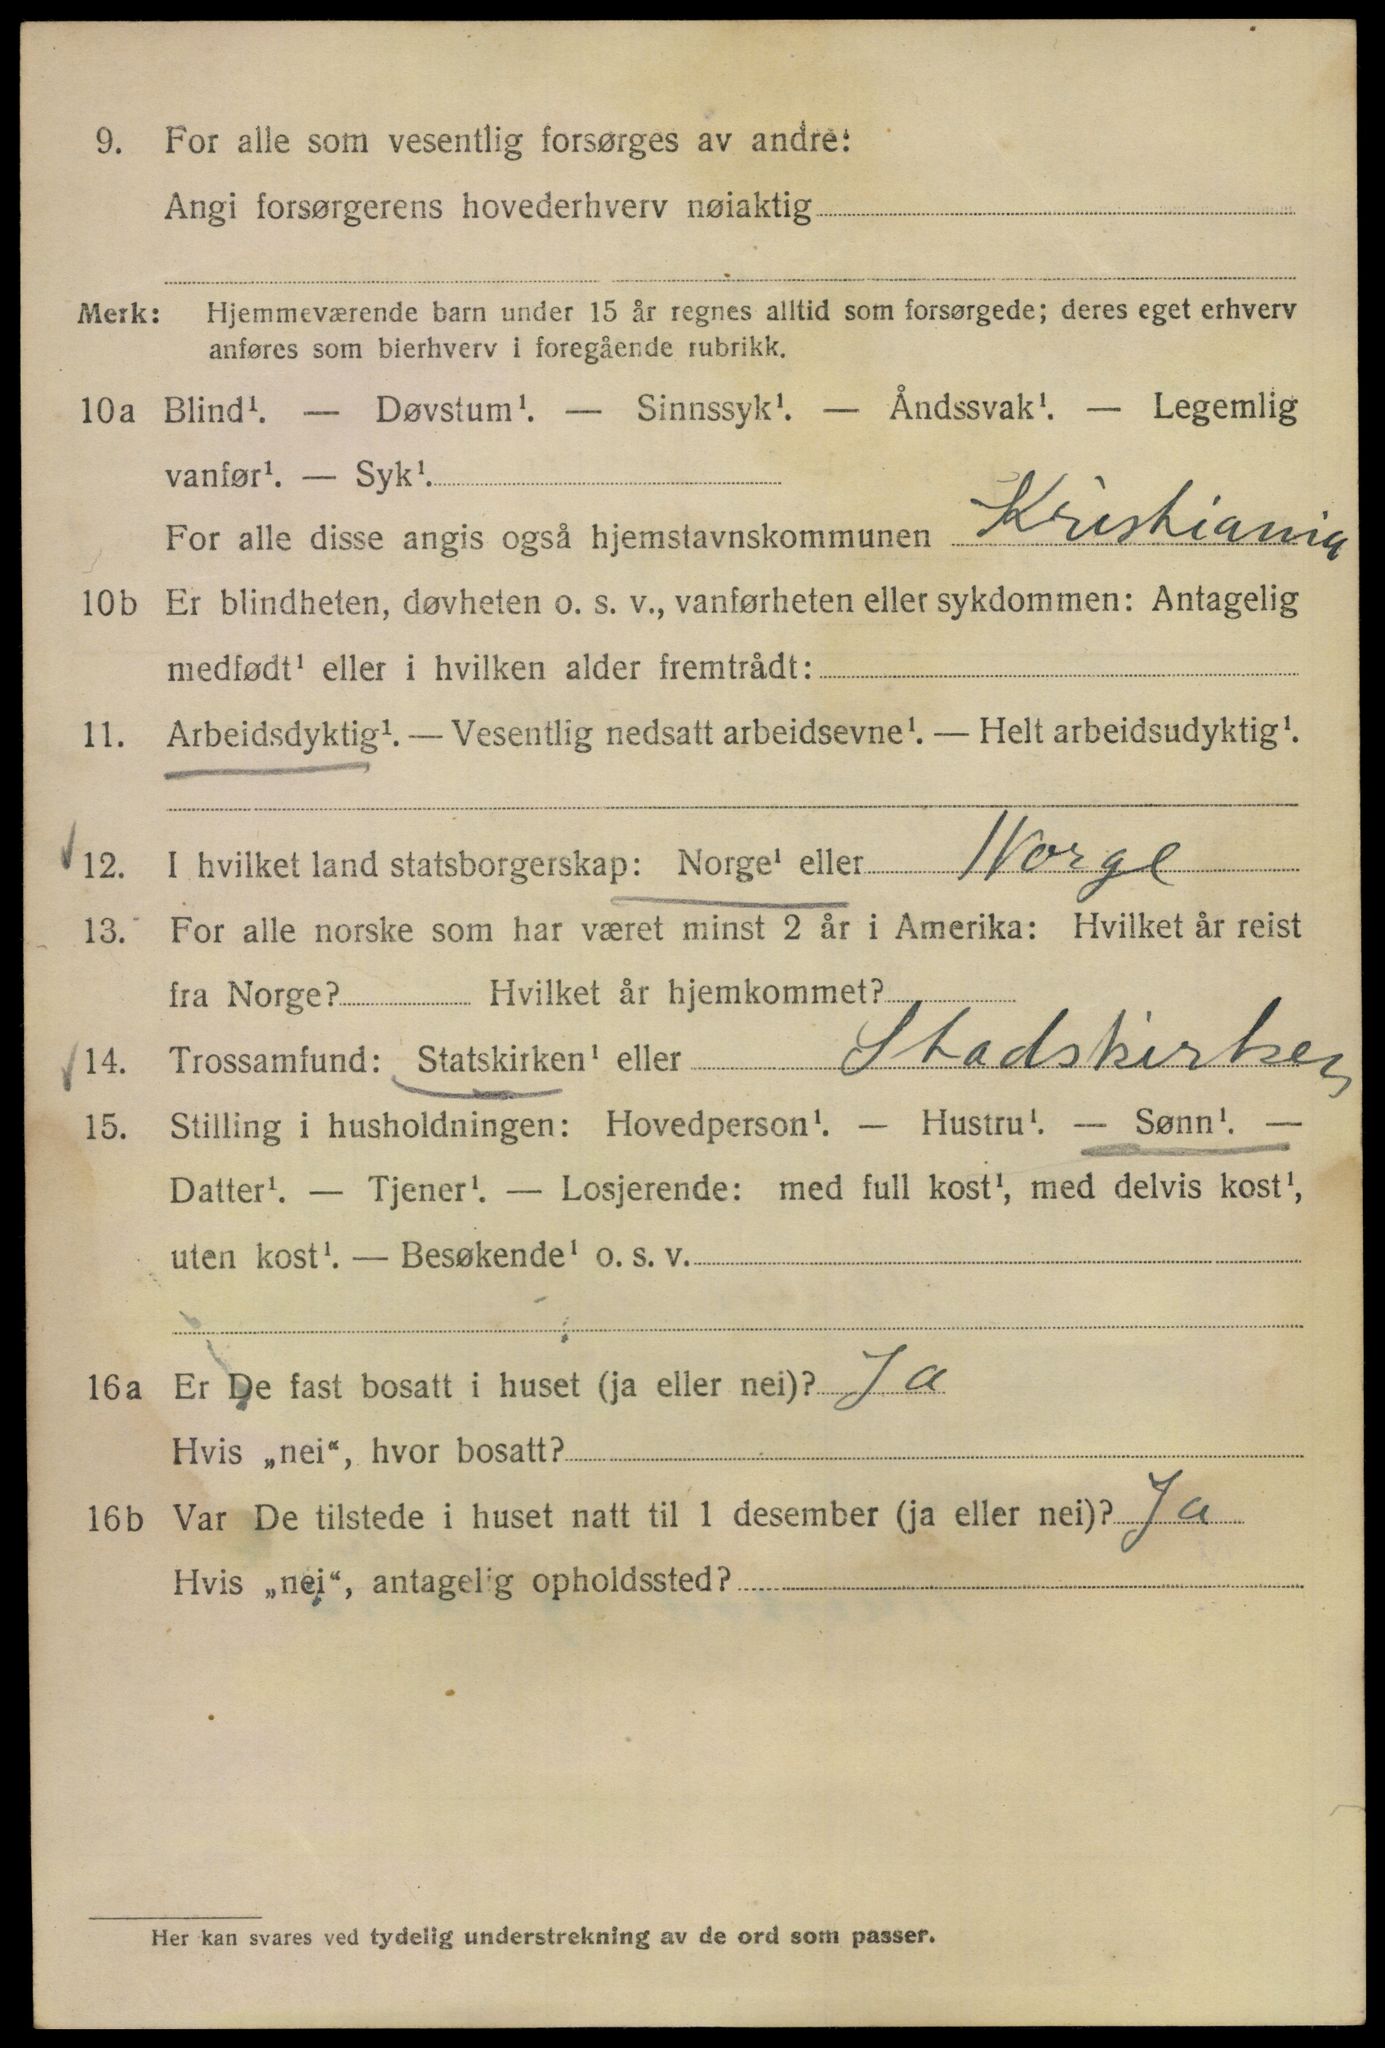 9. For alle som vesentlig forsørges av andre:
Angi forsørgerens hovederhverv nøiaktig
Merk: Hjemmeværende barn under 15 år regnes alltid som forsørgede; deres eget erhverv
anføres som bierhverv i foregående rubrikk.
10a Blind¹. — Døvstum¹. — Sinnssyk¹. — Åndssvak¹. — Legemlig
vanfør¹. — Syk¹.
For alle disse angis også hjemstavnskommunen Kristiania
10b Er blindheten, døvheten o. s. v., vanførheten eller sykdommen: Antagelig
medfødt¹ eller i hvilken alder fremtrådt:
11. Arbeidsdyktig¹. — Vesentlig nedsatt arbeidsevne¹. — Helt arbeidsudyktig¹.
12. I hvilket land statsborgerskap: Norge¹ eller Norge
13. For alle norske som har været minst 2 år i Amerika: Hvilket år reist
fra Norge? Hvilket år hjemkommet?
14. Trossamfund: Statskirken¹ eller Stadskirken
15. Stilling i husholdningen: Hovedperson¹. — Hustru¹. — Sønn¹. —
Datter¹. — Tjener¹. — Losjerende: med full kost¹, med delvis kost¹,
uten kost¹. — Besøkende¹ o. s. v.
16a Er De fast bosatt i huset (ja eller nei)? Ja
Hvis „nei“, hvor bosatt?
16b Var De tilstede i huset natt til 1 desember (ja eller nei)? Ja
Hvis „nei“, antagelig opholdssted?
Her kan svares ved tydelig understrekning av de ord som passer.